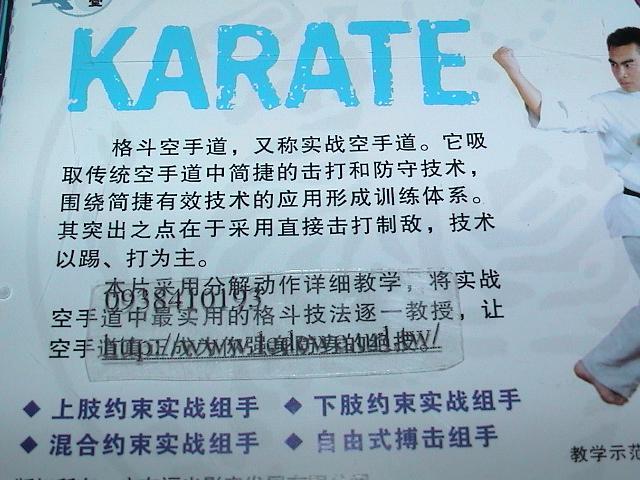 KARATE
格斗空手道，又称实战空手道。它吸
取传统空手道中简捷的击打和防守技术，
围绕简捷有效技术的应用形成训练体系。
其突出之点在于采用直接击打制敌，技术
以踢、打为主。
本片采用分解动作详细教学，将实战
0938410193
空手道中最实用的格斗技法逐一教授，让
空手道
◆ 上肢约束实战组手 ◆ 下肢约束实战组手
◆ 混合约束实战组手 ◆ 自由式搏击组手
教学示范